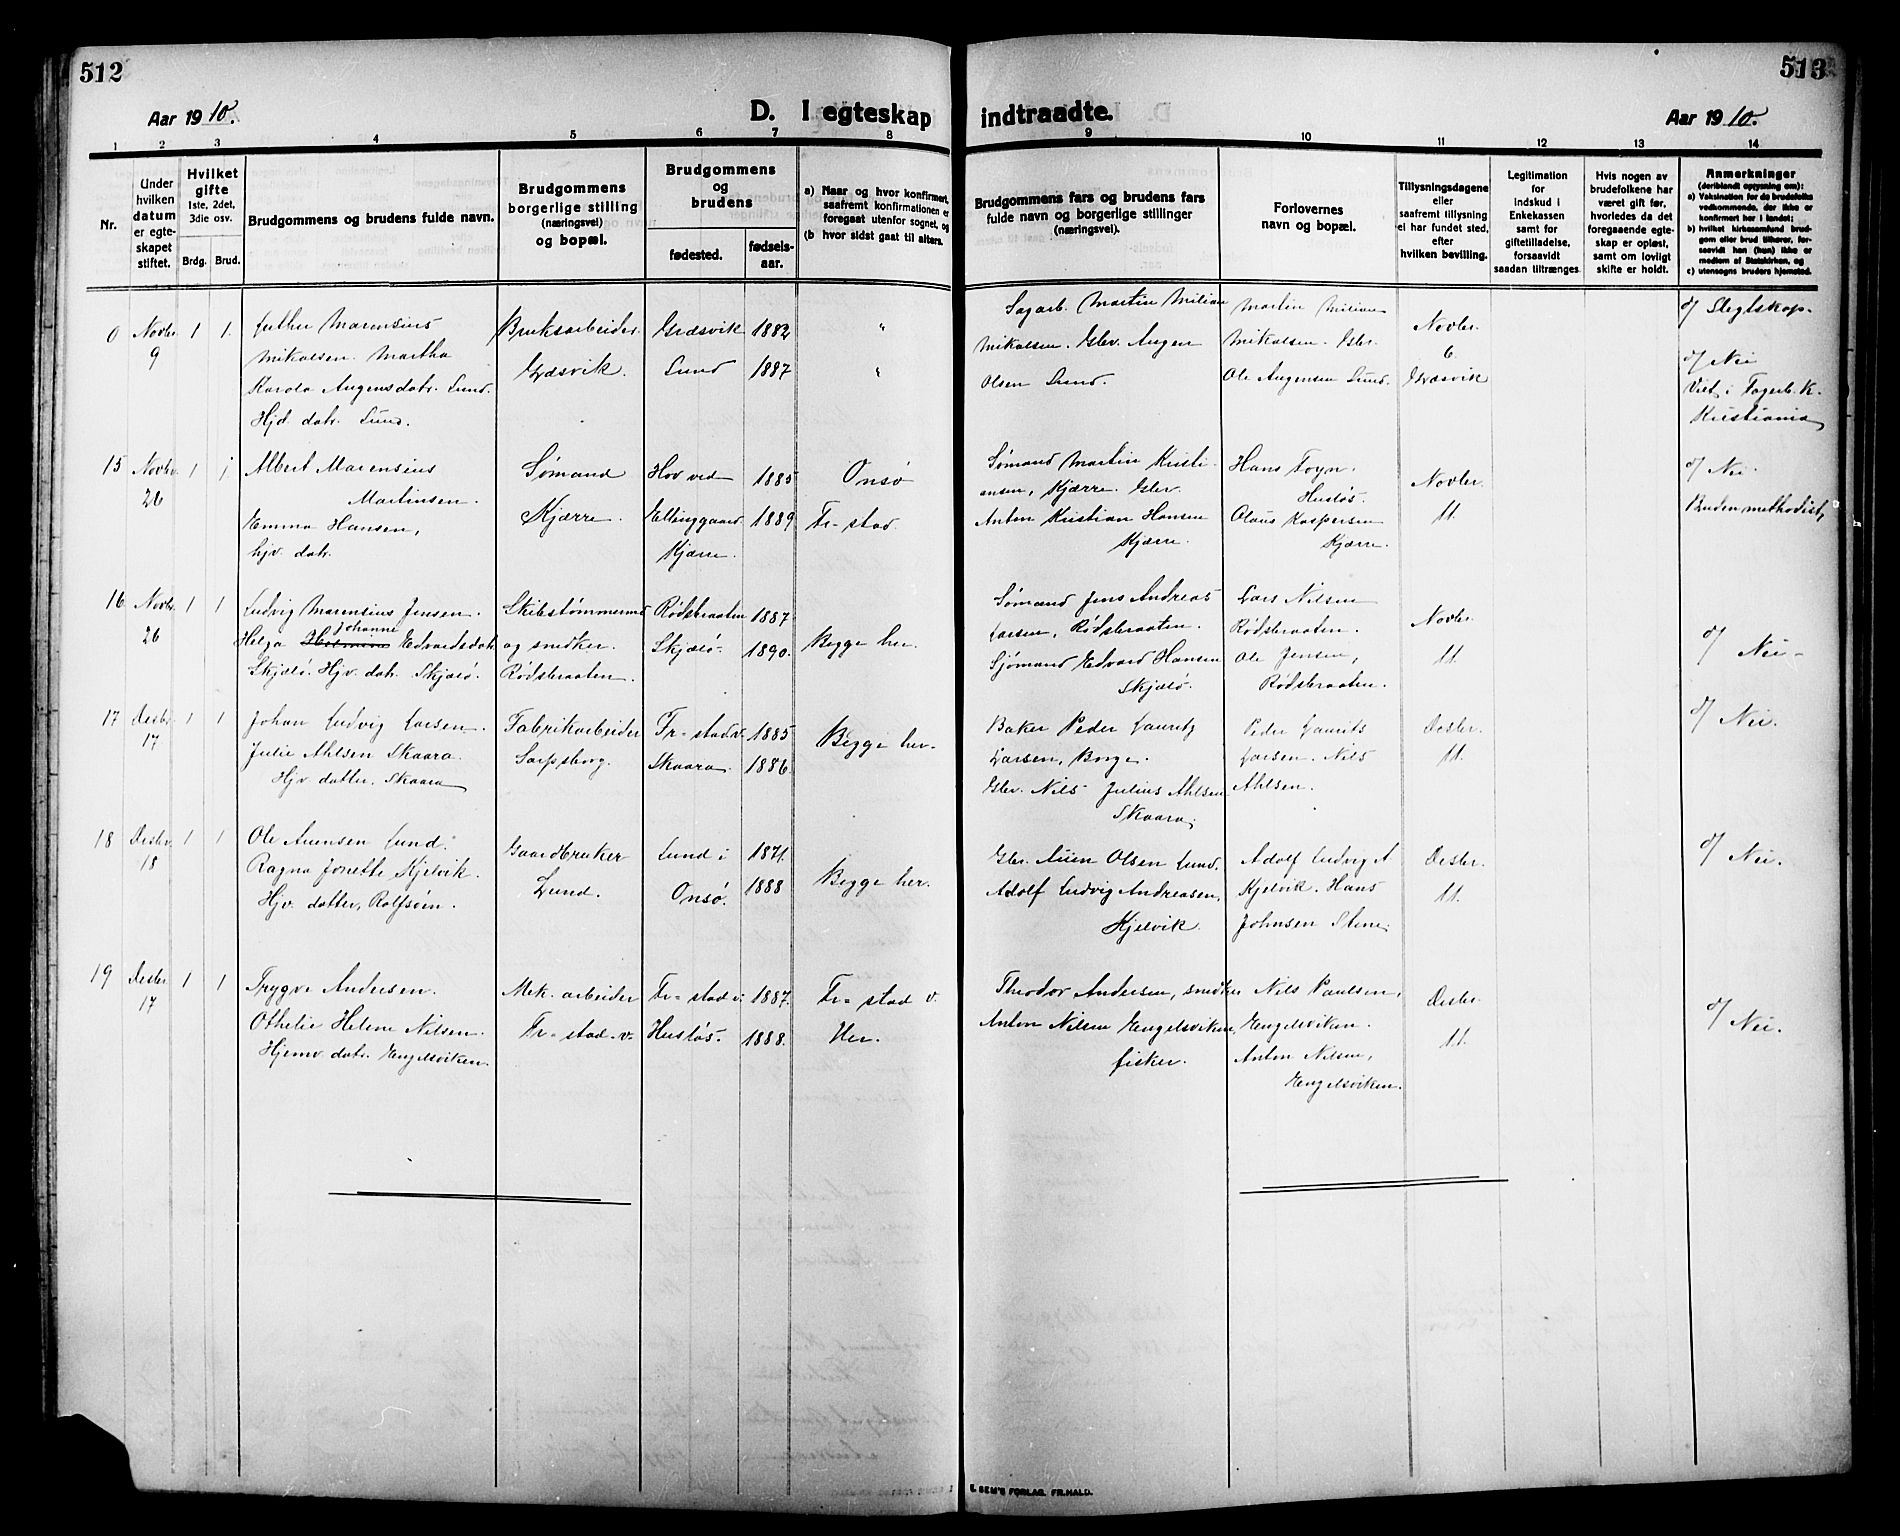 512
513
Aar 1910.
D. I egteskap indtraadte.
Aar 1910.
1 2 3 4 5 6 7 8 9 10 11 12 13 14
Nr.
Under hvilken datum er egteskapet stiftet.
Hvilket gifte 1ste, 2det, 3die osv.
Brdg. Brud.
Brudgommens og brudens fulde navn.
Brudgommens borgerlige stilling (næringsvei) og bopæl.
Brudgommens og brudens
fødested.
fødselsaar.
a) Naar og hvor konfirmert, saafremt konfirmationen er foregaat utenfor sognet, og
(b hvor sidst gaat til alters.
Brudgommens fars og brudens fars fulde navn og borgerlige stillinger (næringsvei).
Forlovernes navn og bopæl.
Tillysningsdagene eller saafremt tillysning ei har fundet sted, efter hvilken bevilling.
Legitimation for indskud i Enkekassen samt for giftetilladelse, forsaavidt saadan tiltrænges
Hvis nogen av brudefolkene har været gift før, hvorledes da det foregaaende egteskap er opløst, samt om lovligt skifte er holdt.
Anmerkninger
(deriblandt oplysning om):
a) Vaksination for de brudefolks vedkommende, der ikke er konfirmert her i landet;
b) hvilket kirkesamfund brudgom eller brud tilhører, forsaavidt han (hun) ikke er medlem af Statskirken, og
c) utensogns bruders hjemsted.
0 Novbr. 9 1 1.
Luther Marensius
Mikalsen. Martha
Karola Augensdatr. Lund.
Hjd datr. Lund.
Bruksarbeider
Græsvik.
Græsvik 1882 "
Lund 1887 "
Sagarb. Martin Milian
Mikalsen. Gbr. Augen
Olsen Lund.
Martin Milian
Mikalsen. Gbr.
Ole Augensen Lund.
Novbr.
6.
Græsvik
o/ Slegtskap.
o/ Nei
Viet i Fagerb. K.
Kristiania
15 Novbr. 26 1 1
Albert Marensius
Martinsen.
Emma Hansen,
hjv. datr.
Sømand
Kjærre.
Hov ved 1885 Onsø
Ellinggaard 1889 Fr=stad.
Kjærre.
Sømand Martin Kristi-
ansen, Kjærre. Gbr.
Anton Kristian Hansen
Kjærre.
Hans Foyn.
Husløs.
Olaus Kaspersen
Kjærre.
Novbr.
11.
o/ Nei.
Bruden methodist,
16 Novbr. 26 1 1
Ludvig Marensius Jensen.
Johanne
Helga Edvardsdatr
Skjælø. Hjv. datr. Skjælø.
Skibstømmermd
og snedker.
Rødsbraaten.
Rødsbraaten 1887
Skjælø. 1890.
Begge her.
Sømand Jens Andreas
Larsen, Rødsbraaten.
Sjømand Edvard Hansen
Skjælø.
Lars Nilsen
Rødsbraaten.
Ole Jensen,
Rødsbraaten.
Novbr.
11.
o/ Nei-
17 Desbr. 17 1 1
Johan Ludvig Larsen.
Julie Ahlsen Skaara.
Hjv. datter. Skaara
Fabrikarbeider
Sarpsborg.
Fr=stad v. 1885
Skaara. 1886.
Begge her.
Baker Peder Lauritz
Larsen, Borge.
Gbr. Nils Julius Ahlsen
Skaara,
Peder Laurits
Larsen. Nils
Ahlsen.
Desbr.
11.
o/ Nei.
18 Desbr. 18 1 1
Ole Auensen Lund.
Ragna Jonette Kjelvik.
Hjv. datter, Rolfsøen.
Gaardbruker
Lund.
Lund i 1871.
Onsø. 1888
Begge her.
Gbr. Auen Olsen Lund.
Adolf Ludvig Andreasen,
Kjelvik.
Adolf Ludvig A
Kjelvik. Hans
Johnsen Stene.
Desbr.
11.
o/ Nei.
19 Desbr 17 1 1
Trygve Andersen.
Othelie Helene Nilsen.
Hjemv. datr. Engelsviken.
Mek. arbeider
Fr=stad. v.
Fr=stad v. 1887. Fr=stad v.
Husløs. 1888. Her.
Theodor Andersen, snedker
Anton Nilsen Engelsviken,
fisker.
Nils Paulsen,
Engelsviken.
Anton Nilsen,
Engelsviken.
Desbr.
11.
o/ Nei.
E. SEM'S FORLAG. FR.HALD.